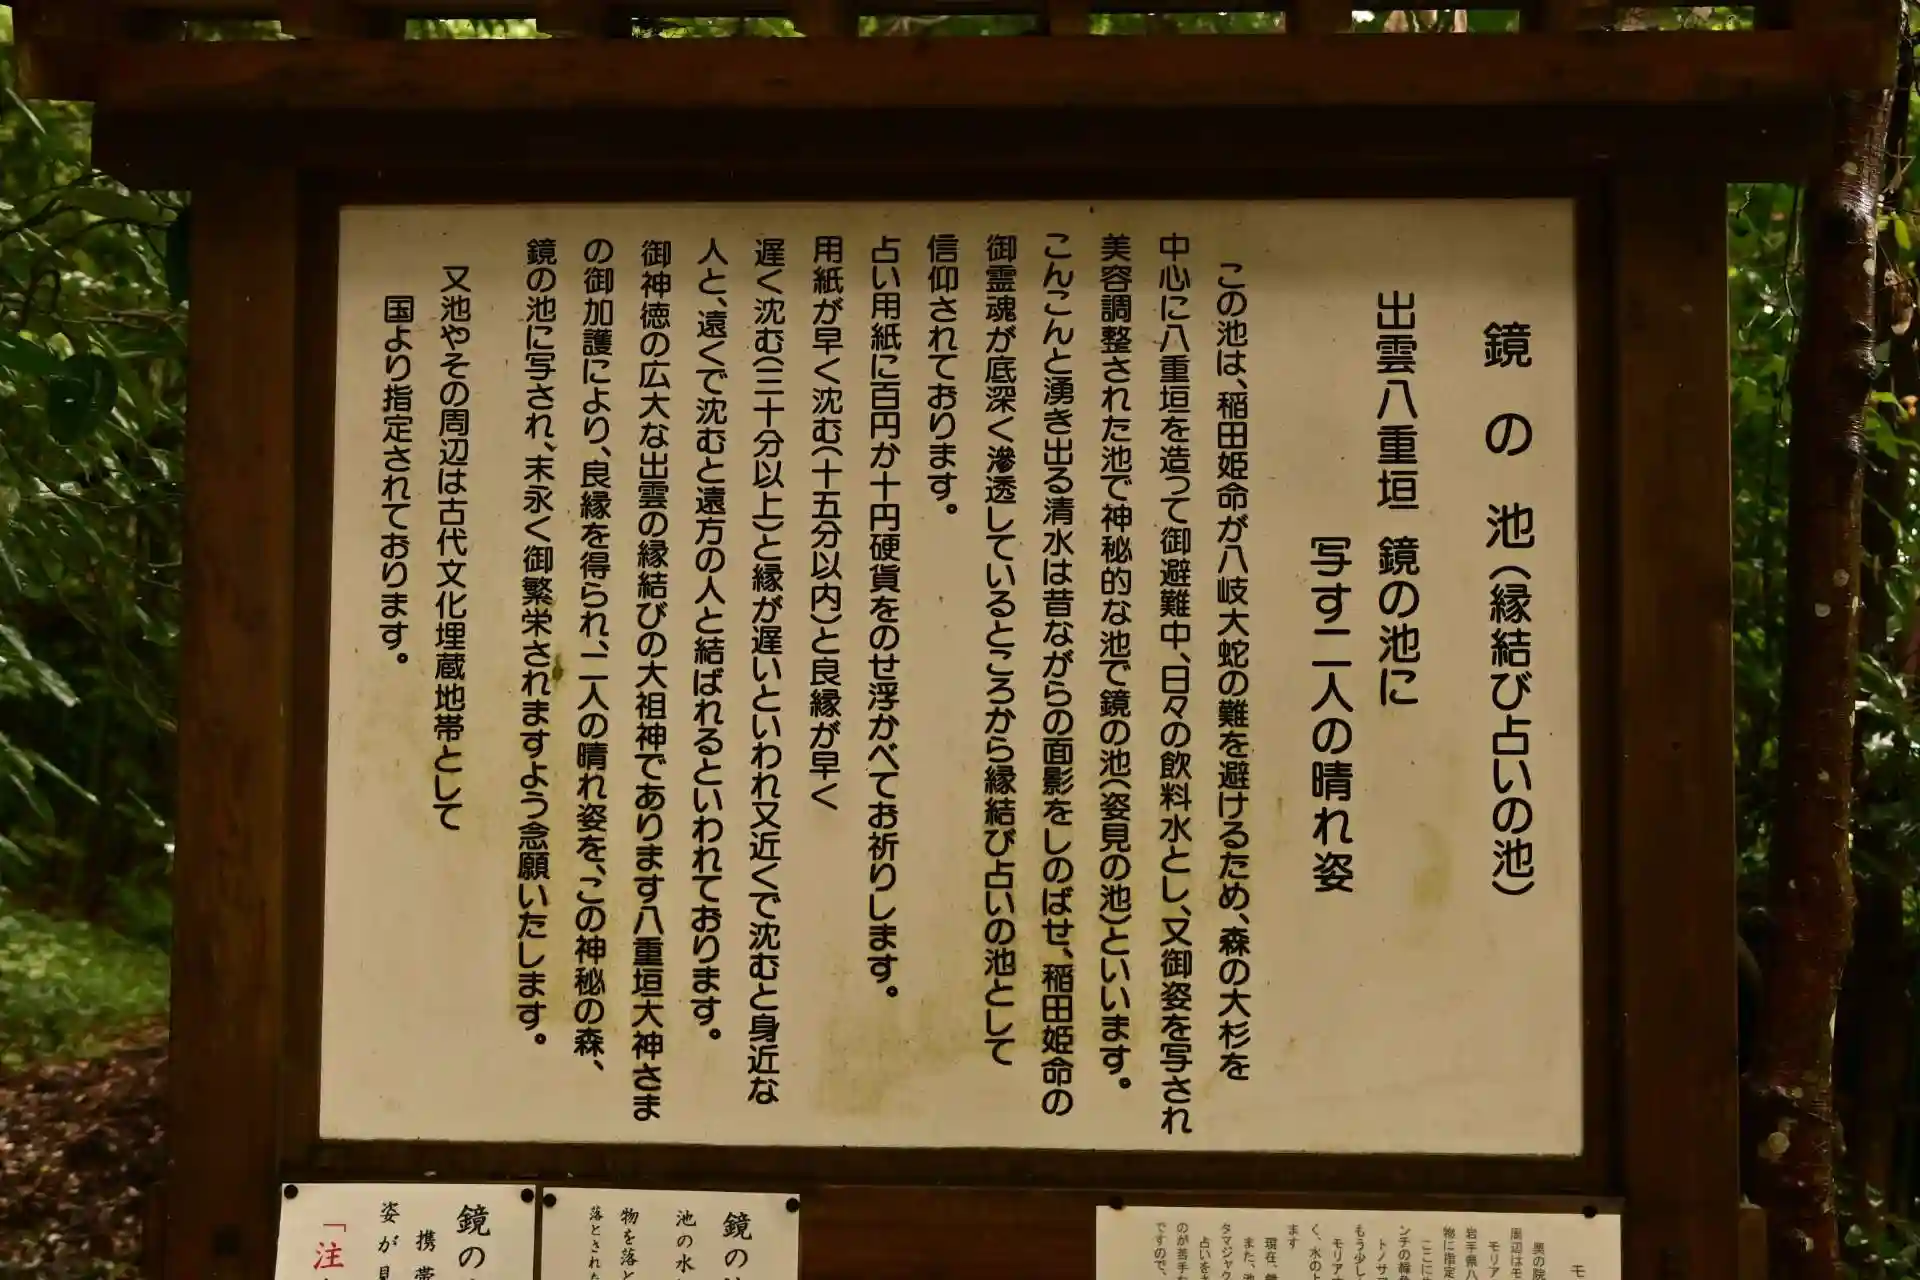 鏡の池（縁結び占いの池）
出雲八重垣 鏡の池に
写す二人の晴れ姿
この池は、稲田姫命が八岐大蛇の難を避けるため、森の大杉を
中心に八重垣を造って御避難中、日々の飲料水とし、又御姿を写され
美容調整された池で神秘的な池で鏡の池（姿見の池）といいます。
こんこんと湧き出る清水は昔ながらの面影をしのばせ、稲田姫命の
御霊魂が底深く滲透しているところから縁結び占いの池として
信仰されております。
占い用紙に百円か十円硬貨をのせ浮かべてお祈りします。
用紙が早く沈む（十五分以内）と良縁が早く
遅く沈む（三十分以上）と縁が遅いといわれ又近くで沈むと身近な
人と、遠くで沈むと遠方の人と結ばれるといわれております。
御神徳の広大な出雲の縁結びの大祖神であります八重垣大神さま
の御加護により、良縁を得られ、二人の晴れ姿を、この神秘の森、
鏡の池に写され、末永く御繁栄されますよう念願いたします。
又池やその周辺は古代文化埋蔵地帯として
国より指定されております。
モ
奥の院
周辺はモ
モリア
岩手県八
物に指定
ここに
ンチの
トノサマ
もう少し
モリア
く、水の上
ます
現在、
また、池
タマジャク
占いをさ
のが苦手な
ですので、
鏡の
池の水
物を落と
落とされた
鏡の
携帯
姿が見
「注